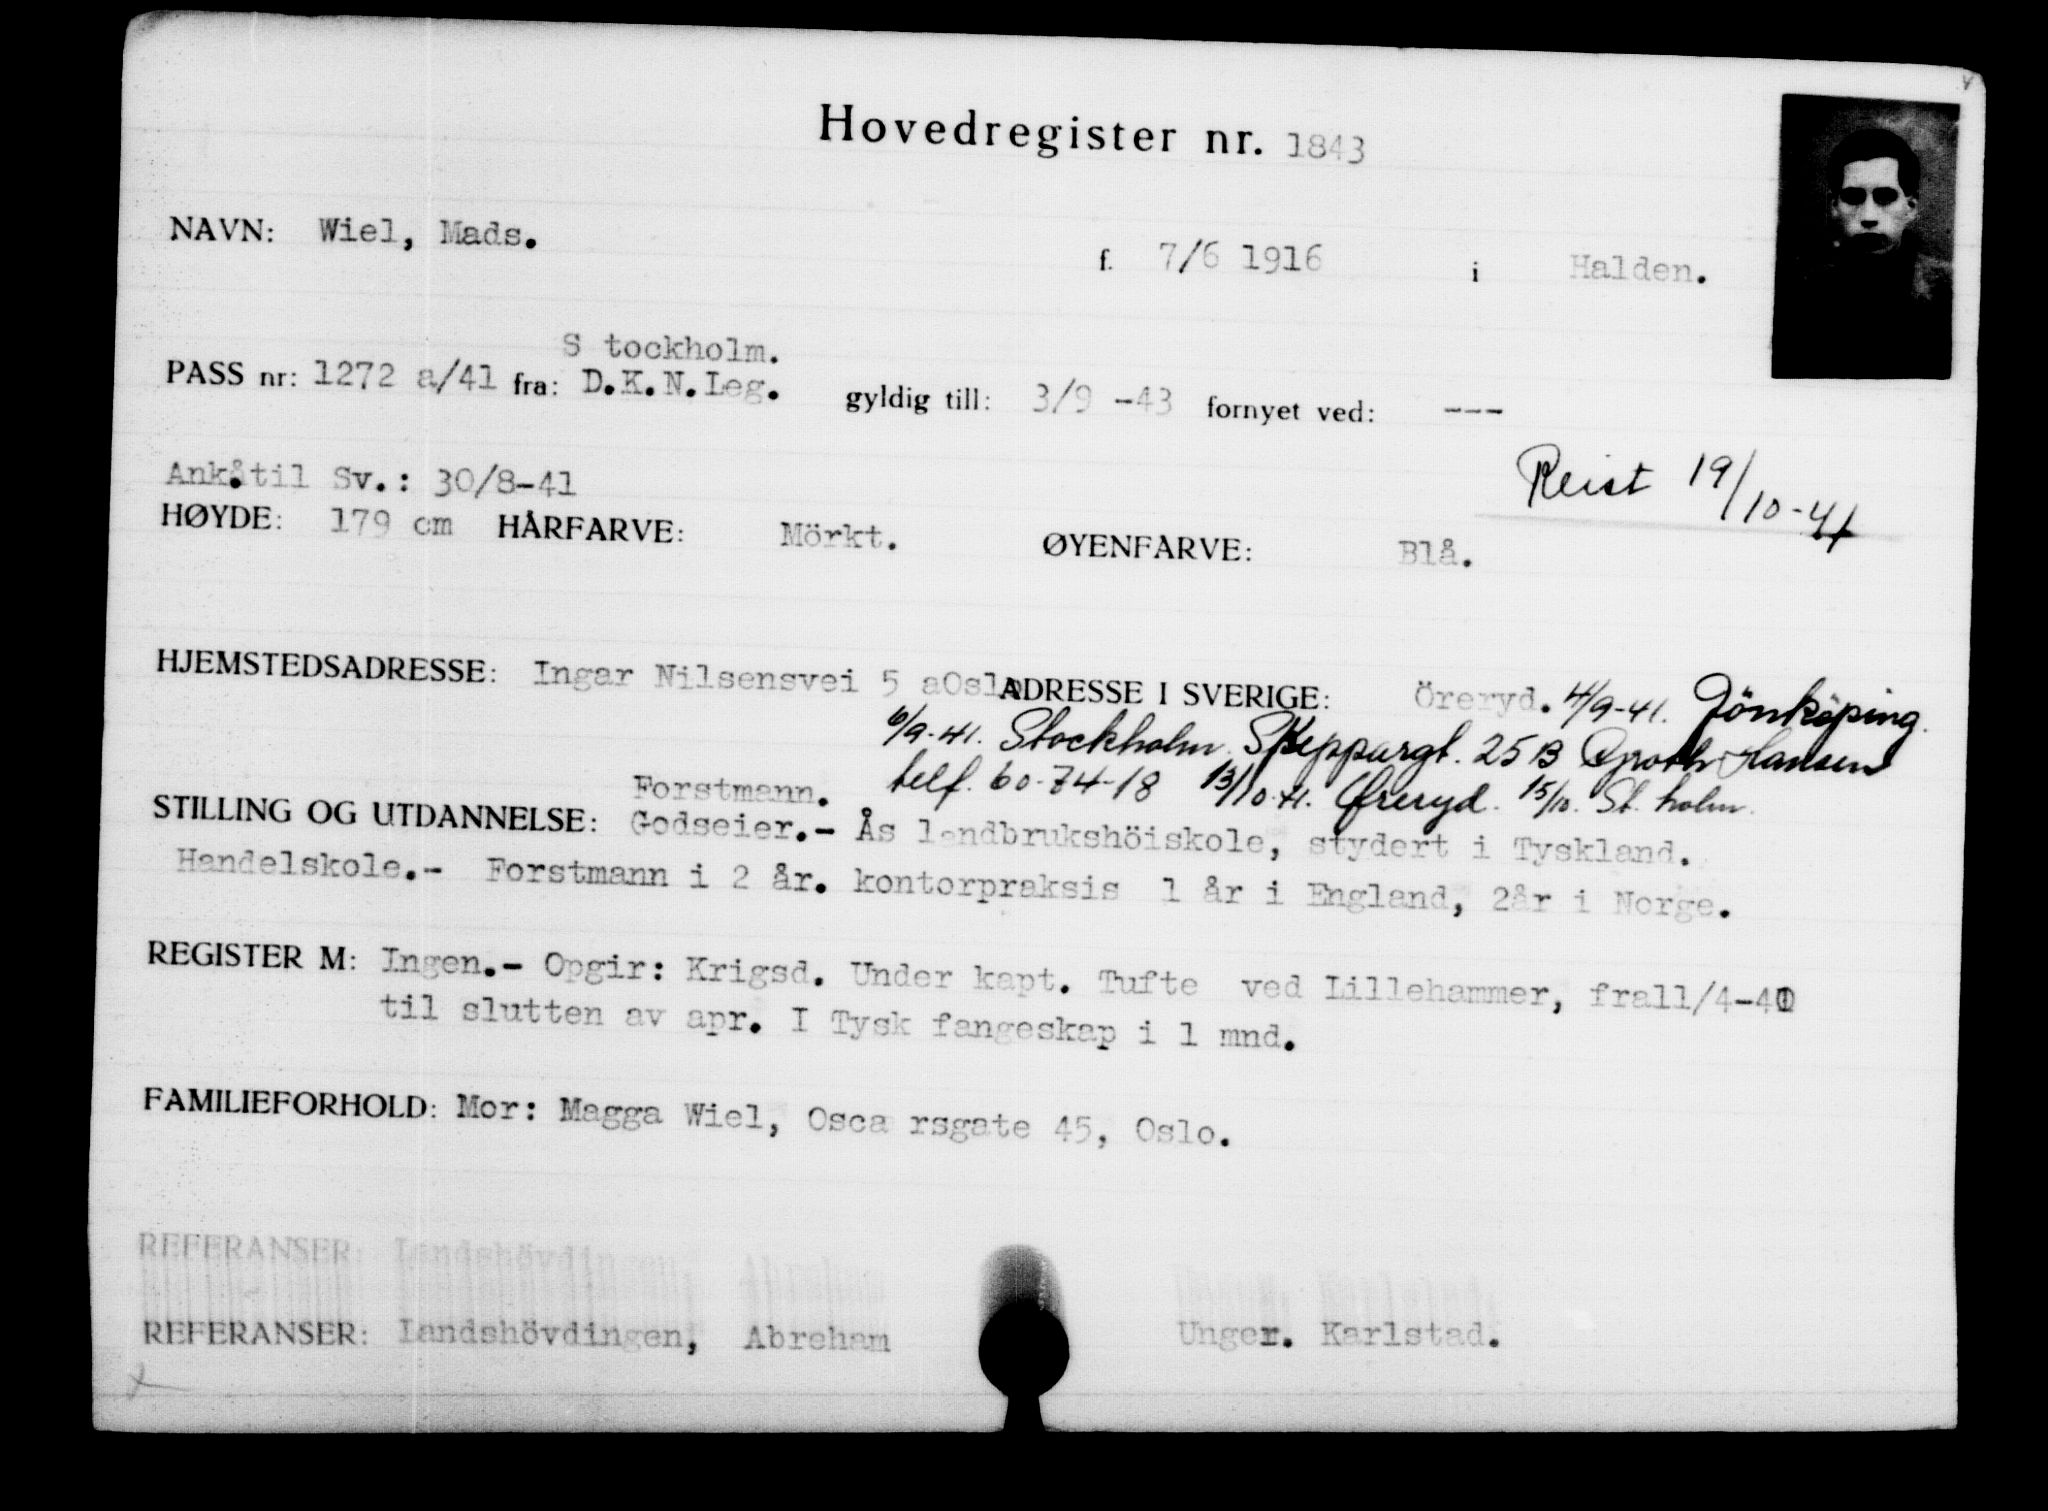 Hovedregister nr. 1843
NAVN: Wiel, Mads. f. 7/6 1916 i Halden.
S tockholm.
PASS nr: 1272 a/41 fra: D.K.N.Leg. gyldig till: 3/9 -43 fornyet ved: ---
Ank.til Sv.: 30/8-41
Reist 19/10-41
HØYDE: 179 cm HÅRFARVE: Mörkt. ØYENFARVE: Blå.
HJEMSTEDSADRESSE: Ingar Nilsensvei 5 aOslo ADRESSE I SVERIGE: Öreryd. 4/9-41. Jönköping.
6/9-41. Stockholm. Skeppargt. 25 B Groth Hansen
telf. 60-74-18 13/10-41. Öreryd. 15/10. St. holm.
Forstmann.
STILLING OG UTDANNELSE: Godseier.- Ås landbrukshöiskole, stydert i Tyskland.
Handelskole.- Forstmann i 2 år. kontorpraksis 1 år i England, 2år i Norge.
REGISTER M: Ingen.- Opgir: Krigsd. Under kapt. Tufte ved Lillehammer, fra11/4-40
til slutten av apr. I Tysk fangeskap i 1 mnd.
FAMILIEFORHOLD: Mor: Magga Wiel, Osca rsgate 45, Oslo.
REFERANSER: Landshövdingen,
REFERANSER: Landshövdingen, Abreham Unger. Karlstad.